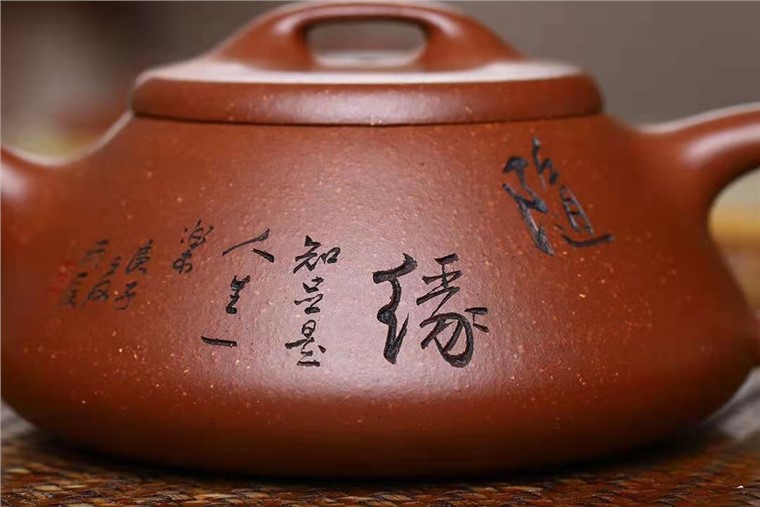 随
缘
知足是
人生一
樂
庚子